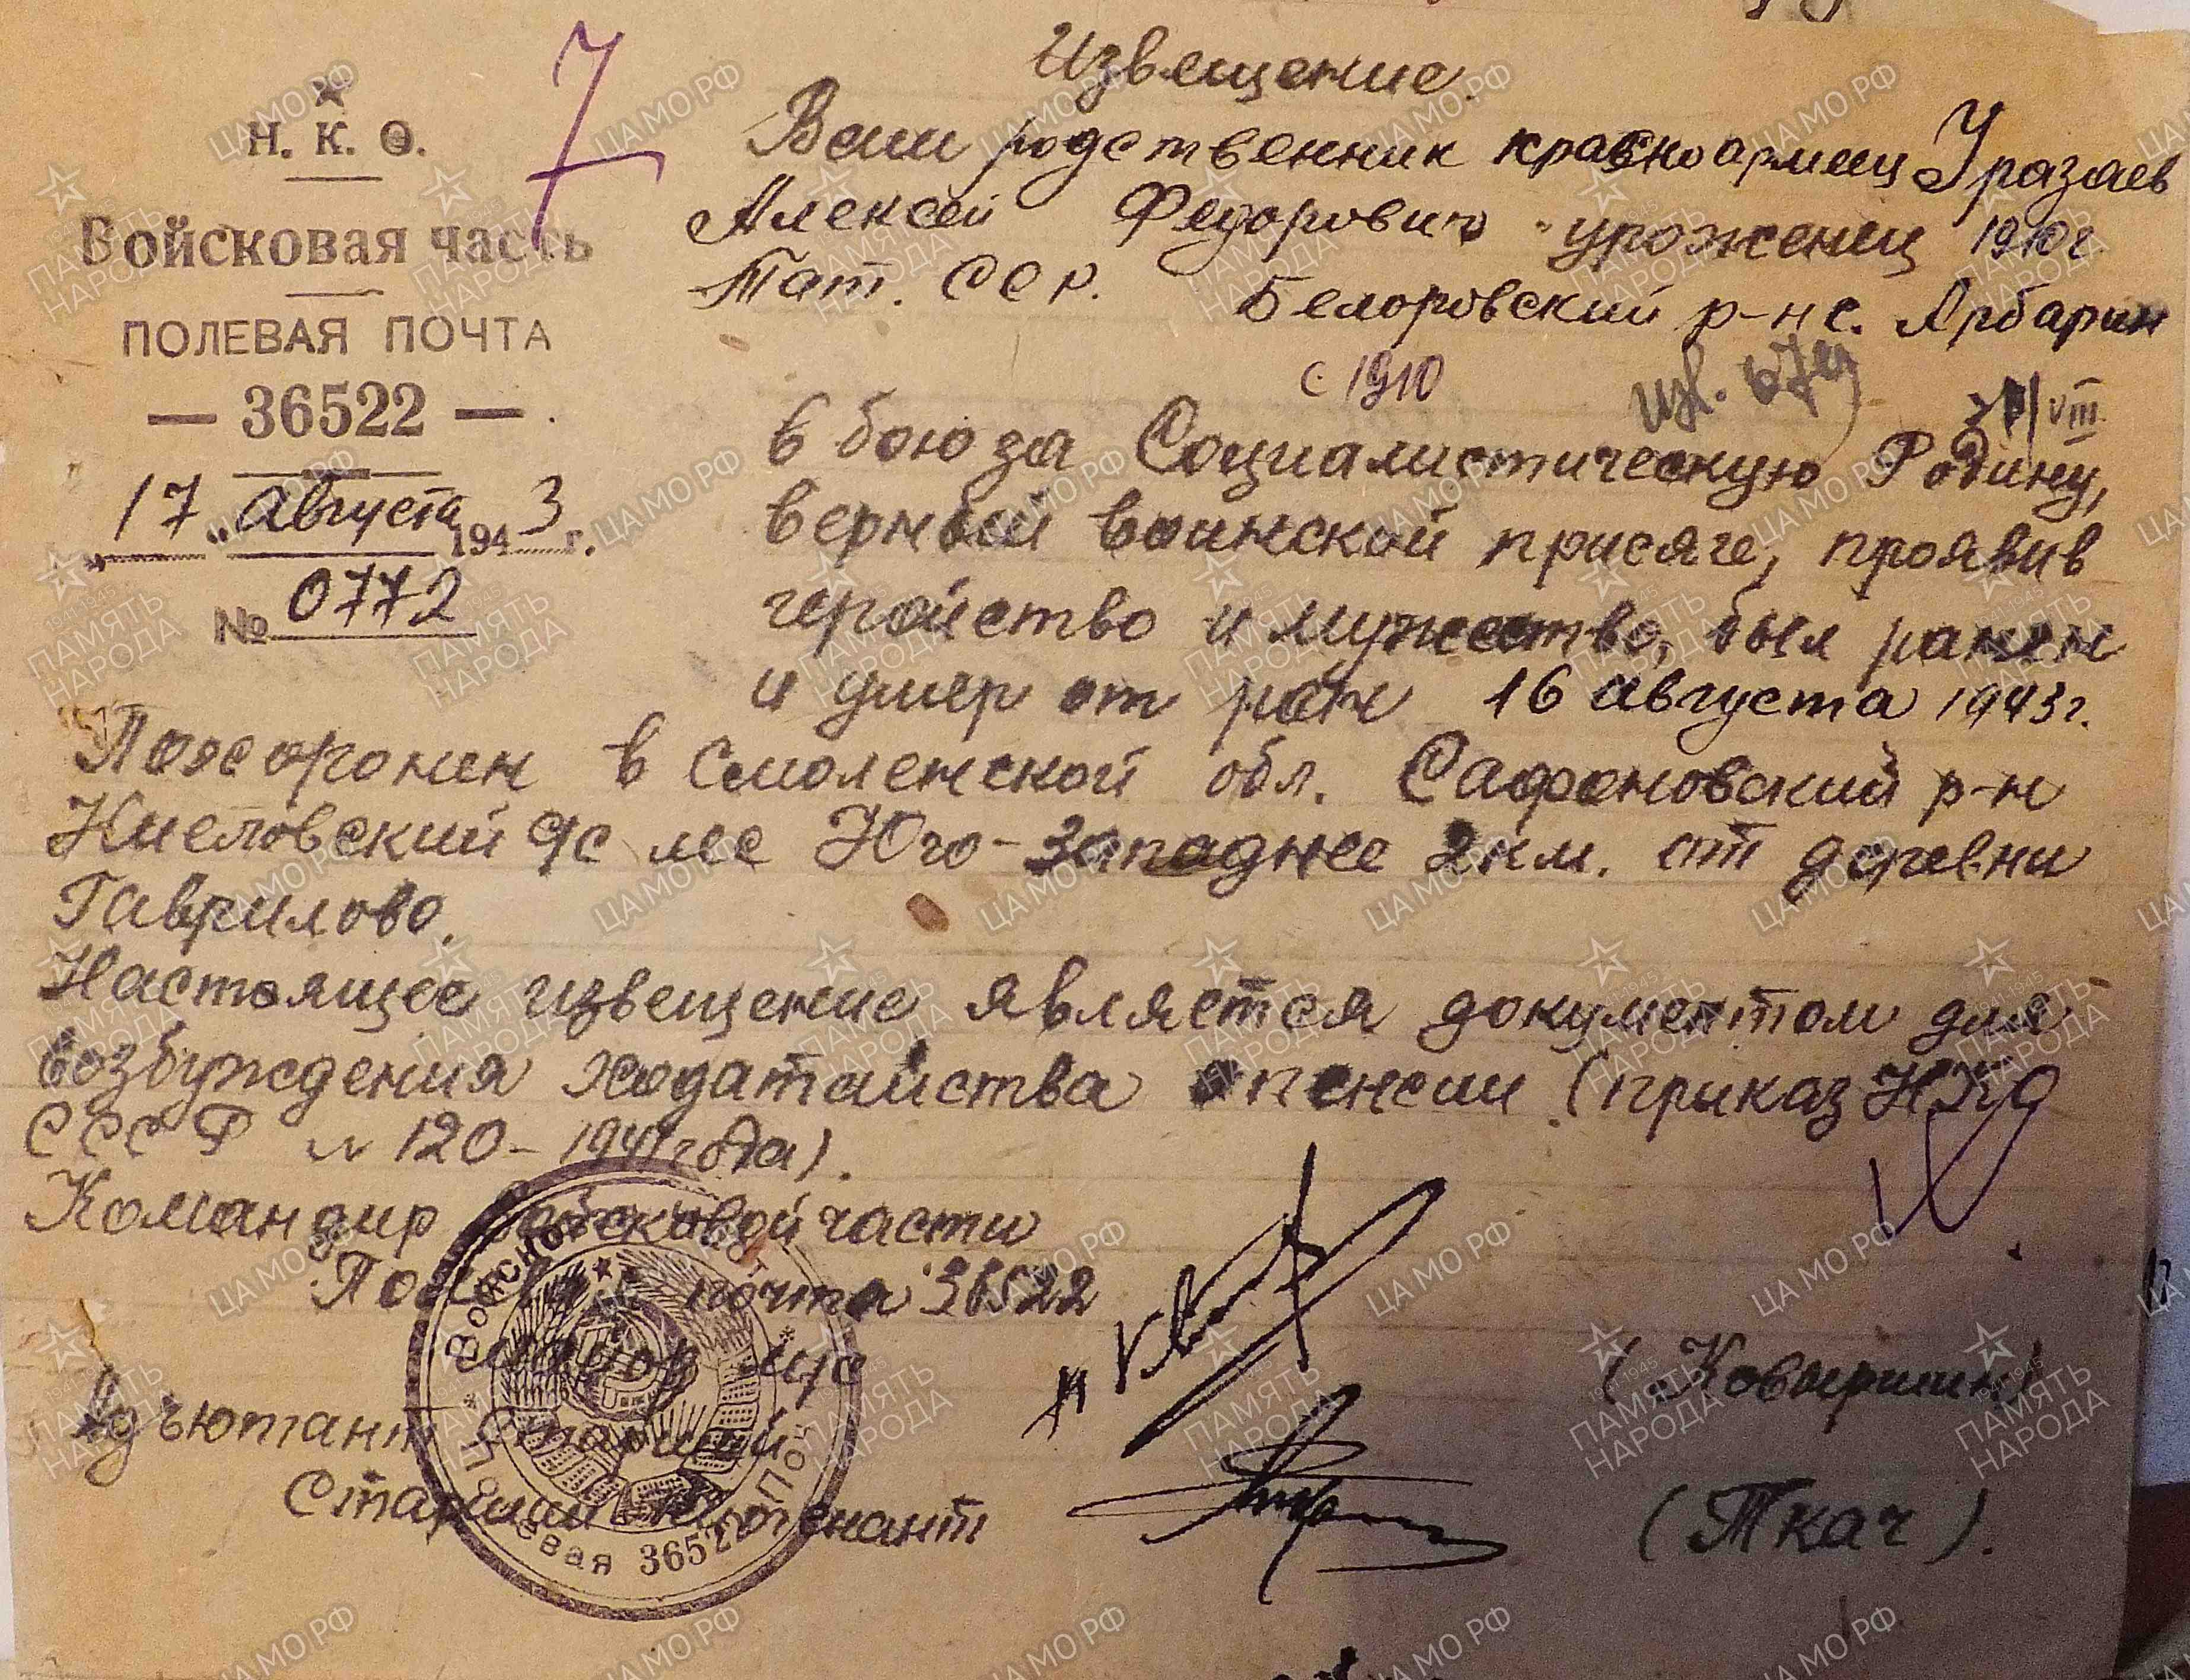 Извещение.
Н. К. О.
Войсковая часть
ПОЛЕВАЯ ПОЧТА
— 36522 —
"17" августа 1943 г.
№ 0772
7
Ваш родственник красноармеец Уразаев
Алексей Федорович урожениц 1910 г.
Тат. ССР. Белоровский р-н с. Арбарин
с 1910
изв. 679
VIII
в бою за Социалистическую Родину,
верный воинской присяге, проявив
геройство и мужество, был ранен
и умер от ран 16 августа 1943 г.
Похоронен в Смоленской обл. Сафоновский р-н
Юго-Западнее 2 км. от деревни
Гаврилово.
Настоящее извещение является документом для
возбуждения ходатайства о пенсии (приказ НКО
СССР № 120-1941 года).
Командир войсковой части
Полевая почта 36522
майор
Адъютант Старший
Старший лейтенант
(Ковыршин)
(Ткач).
Войсков
Полевая 36522
ЦАМО РФ
1941-1945
ПАМЯТЬ
НАРОДА